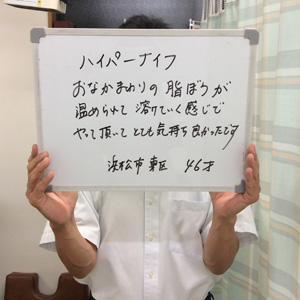 ハイパーナイフ
おなかまわりの脂ぼうが
温められて溶けていく感じで
やって頂いてとても気持ち良かったです
浜松市東区 46才